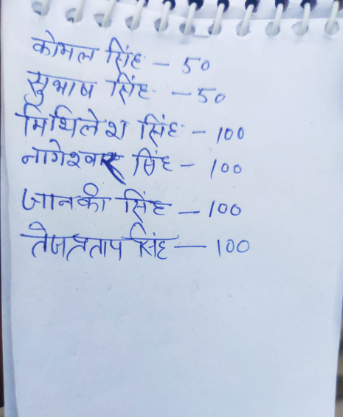 कोमल सिंह - 50
सुभाष सिंह - 50
मिथिलेश सिंह - 100
नागेश्वर सिंह - 100
जानकी सिंह - 100
तेजप्रताप सिंह - 100